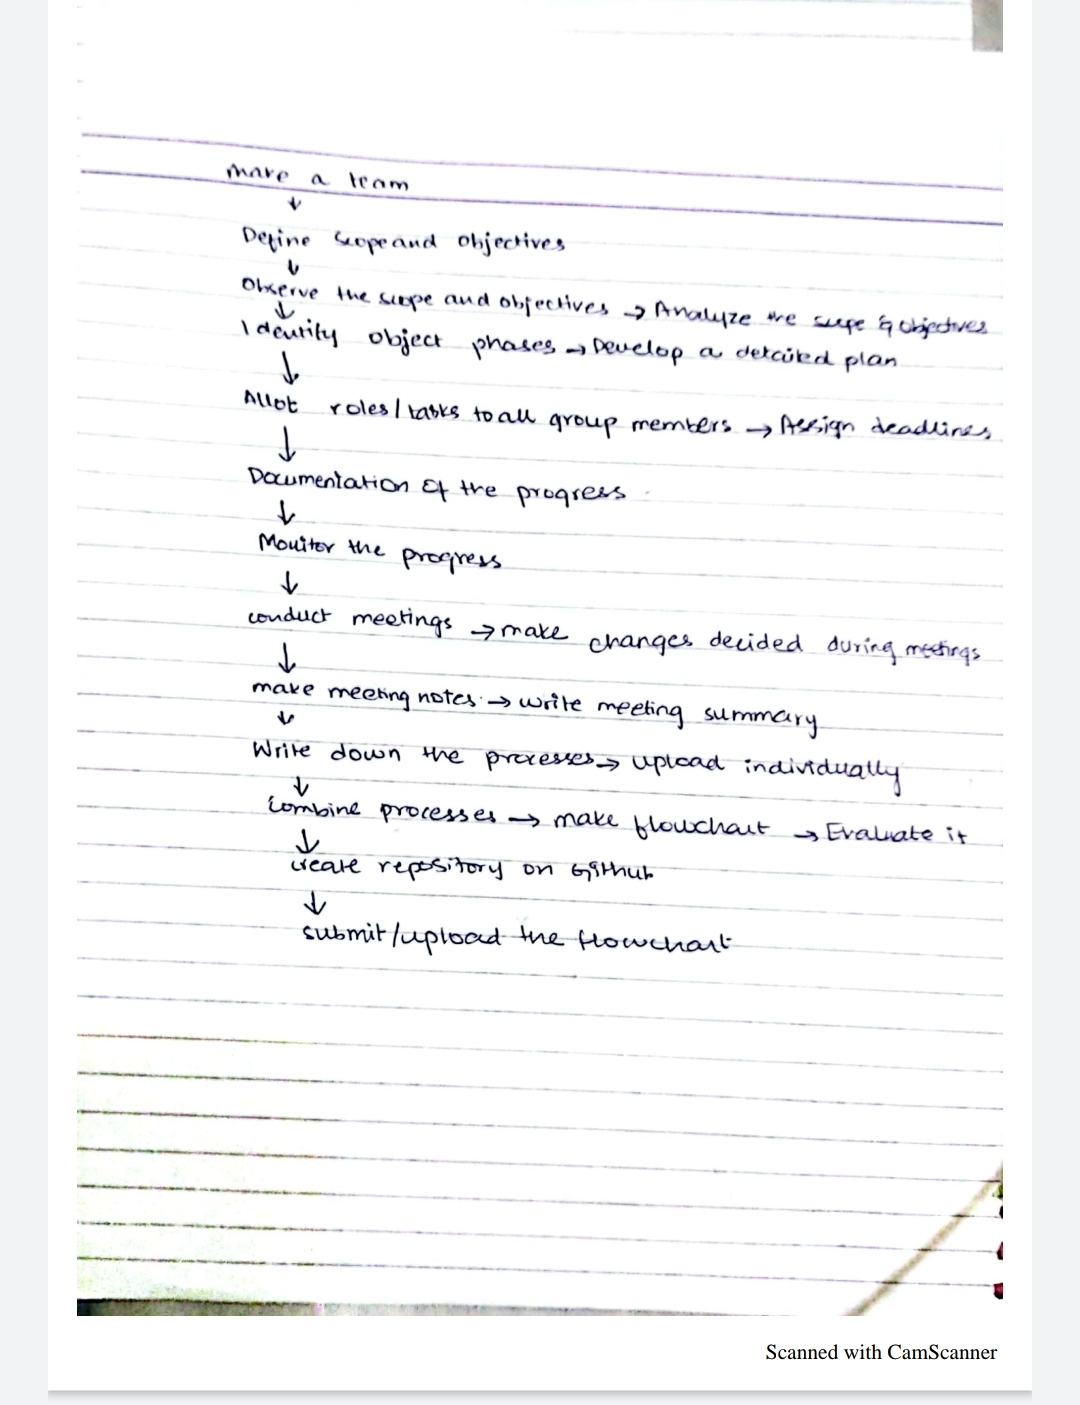 make a team
↓
Define scope and objectives
↓
Observe the scope and objectives → Analyze the scope & objectives
↓
Identify object phases → Develop a detailed plan
↓
Allot roles / tasks to all group members → Assign deadlines
↓
Documentation of the progress
↓
Monitor the progress
↓
conduct meetings → make changes decided during meetings
↓
make meeting notes → write meeting summary
↓
Write down the processes → upload individually
↓
Combine processes → make flowchart → Evaluate it
↓
create repository on GitHub
↓
submit/upload the flowchart
Scanned with CamScanner